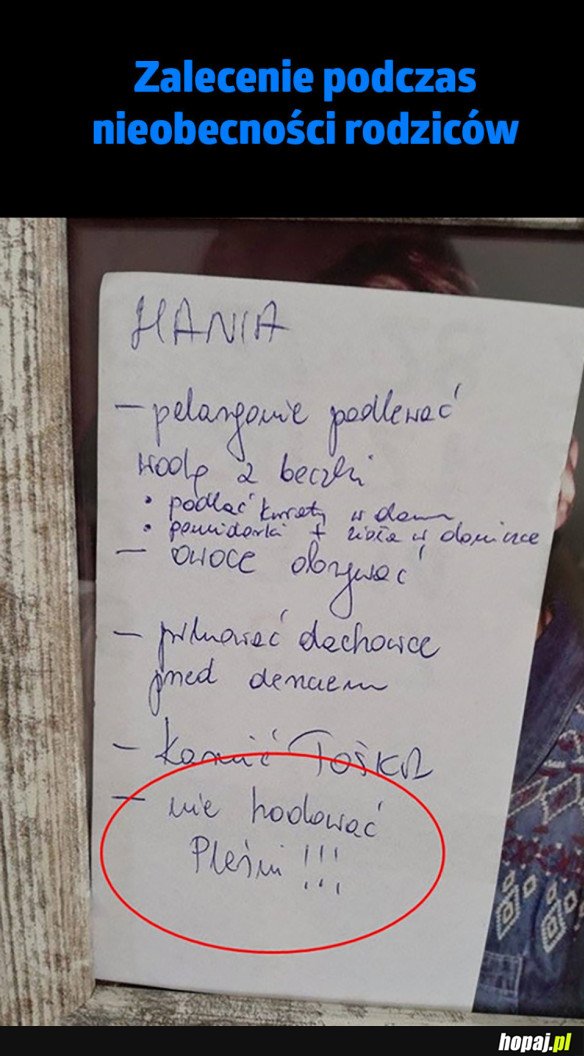 Zalecenie podczas
nieobecności rodziców
HANIA
– pelargonie podlewać
wodą z beczki
• podlać kwiaty w domu
• pomidorki + zioła w donicce
– owoce obrywać
– pilnować dachowce
przed deszczem
– karmić TOŚKA
– nie hodować
Pleśni !!!
hopaj.pl